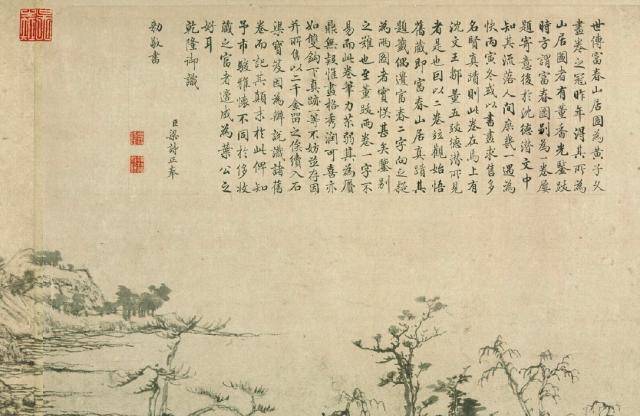 世傳富春山居圖為黃子久
畫卷之冠昨年得其所為
山居圖者有董香光鑒跋
時方謂富春圖別為一卷屢
題寄意後於沈德潛文中
知其流落人間庶幾一遇為
快丙寅冬或以書畫求售多
名賢真蹟則此卷在焉上有
沈文王鄒董五跋德潛所見
者是也因以二卷並觀始悟
舊藏即富春山居真蹟其
題籤偶遺富春二字向之疑
為兩圖者實悮甚矣鑒別
之難也至董跋兩卷一字不
易而此卷筆力苶弱其為贗
鼎無疑惟畫格秀潤可喜亦
如雙鉤下真蹟一等不妨並存因
并所售以二千金留之俟續入石
渠寶笈因為辨說識諸舊
卷而記其顛末於此俾知
予市駿雅懷不同於侈收
藏之富者適成為葉公之
好耳
乾隆御識
臣梁詩正奉
勅敬書